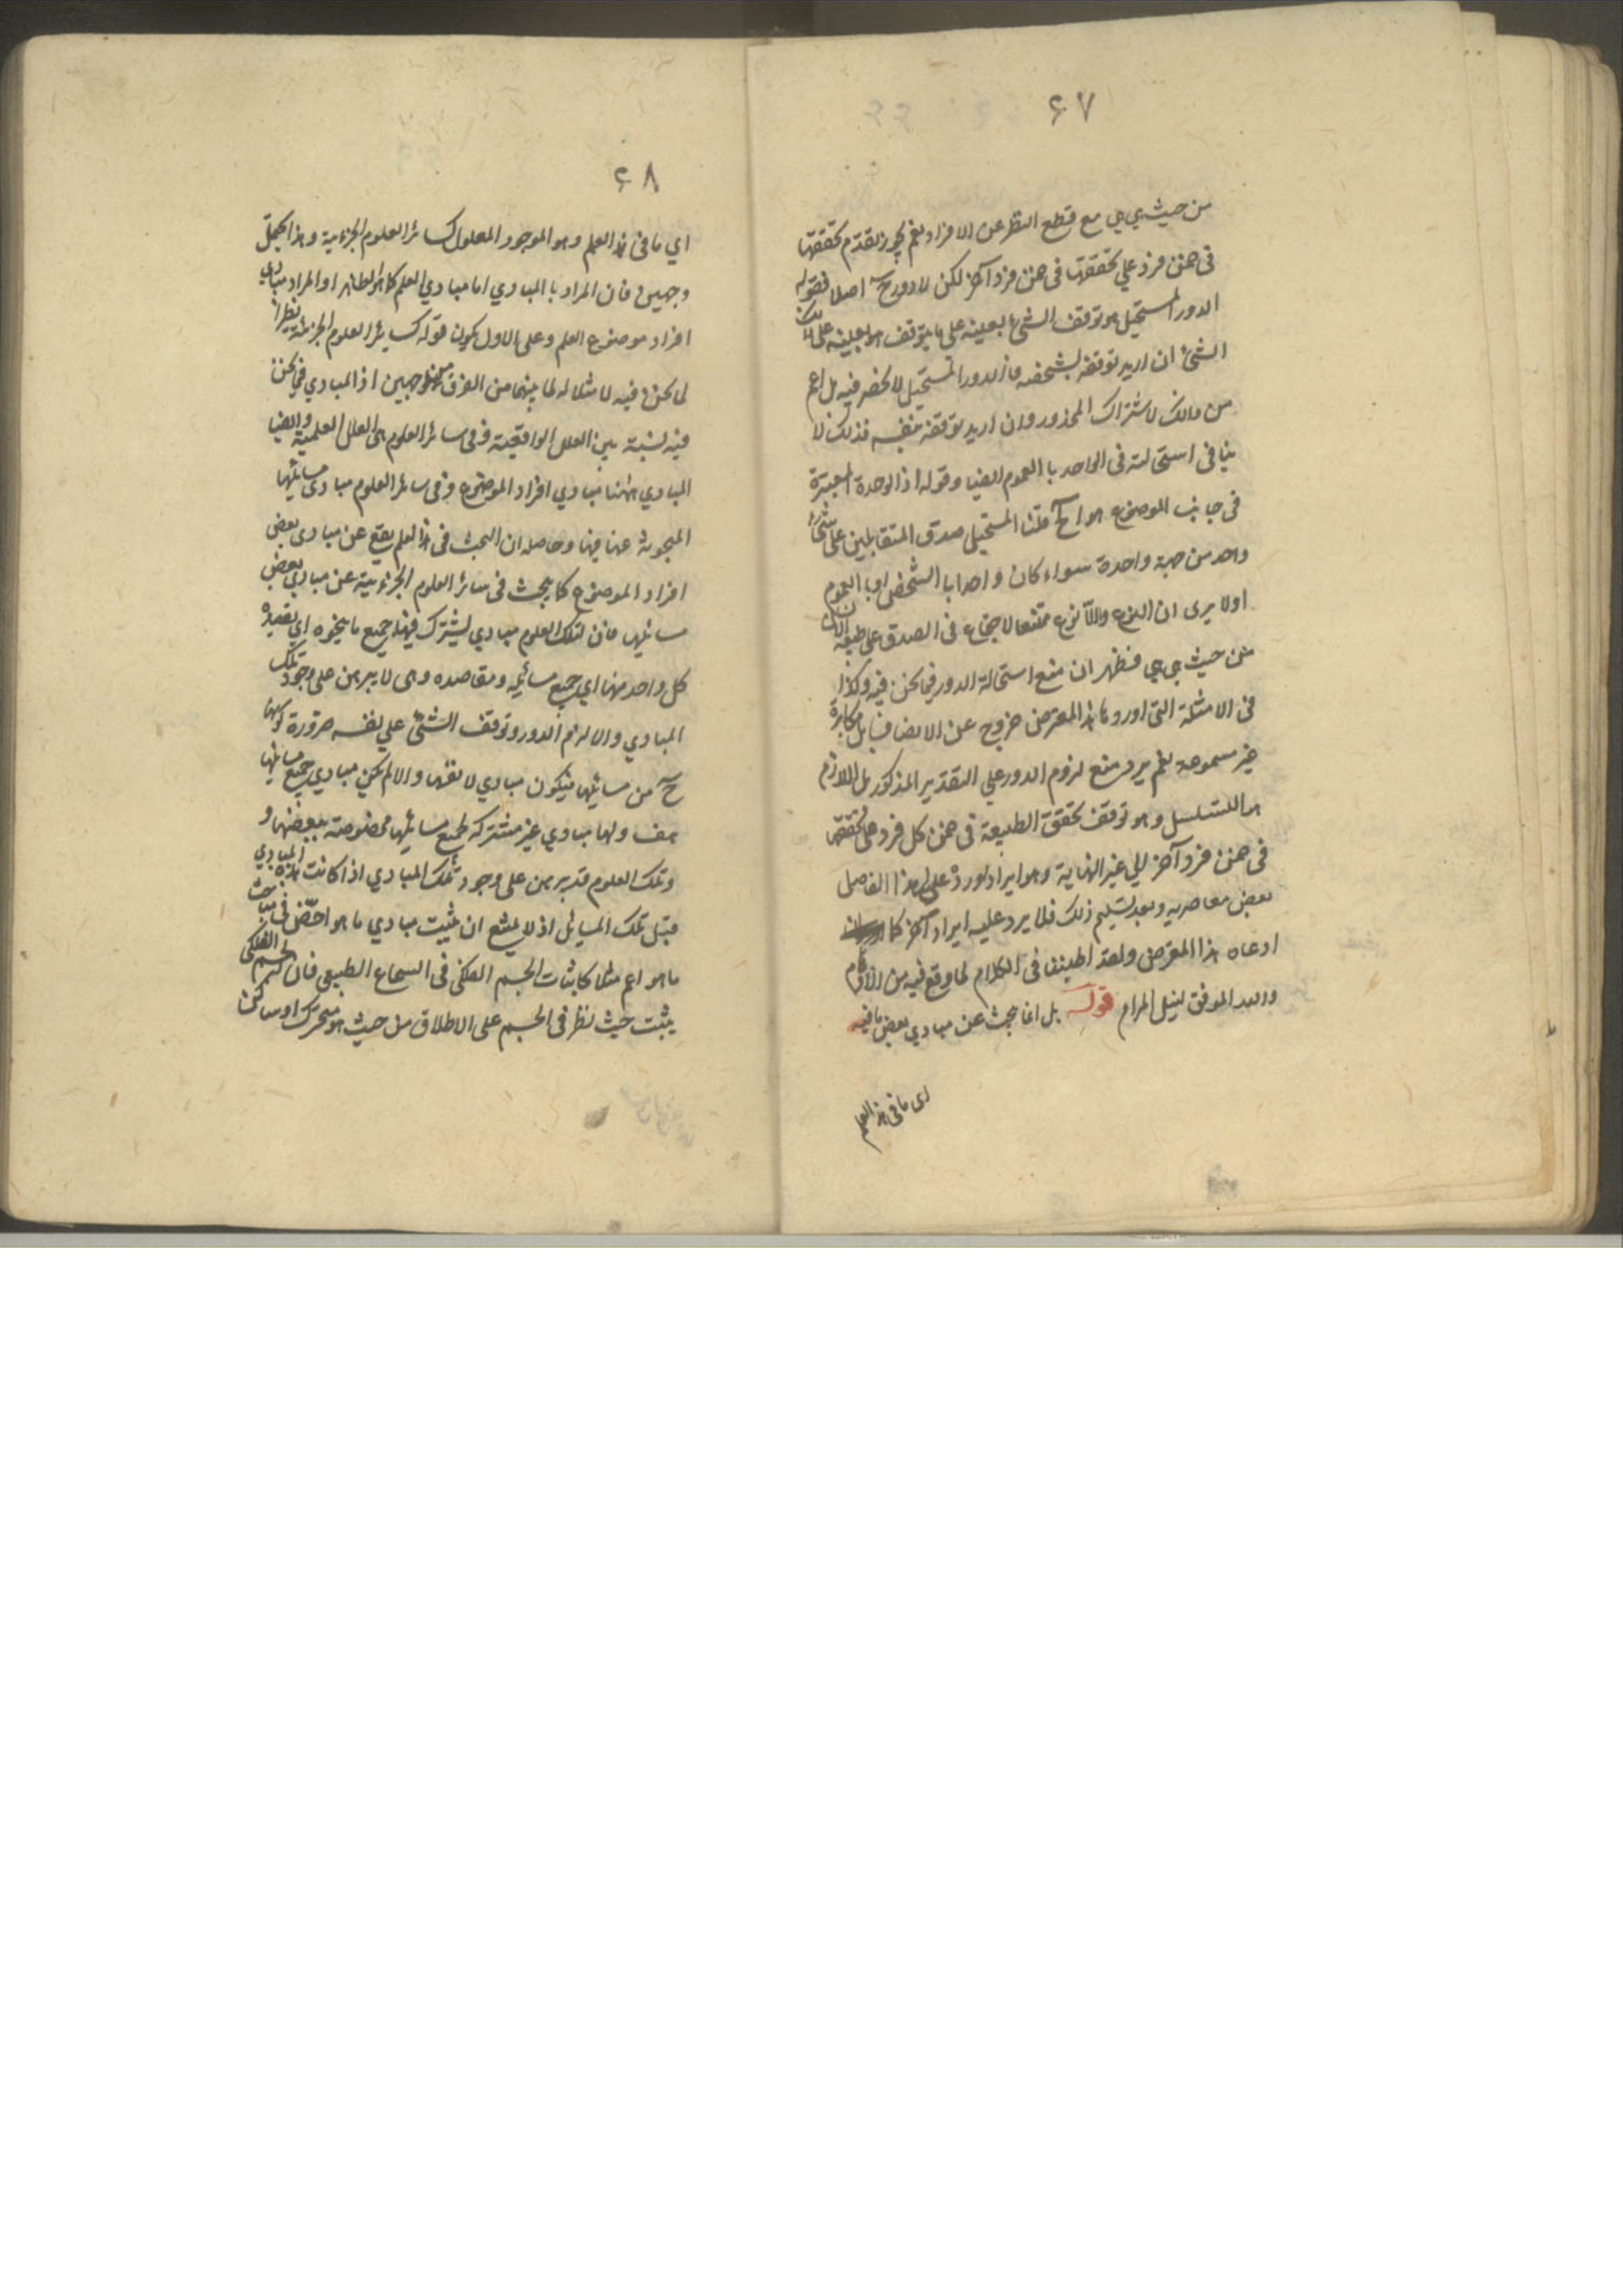 ۶۷
من حيث هي هي مع قطع النظر عن الافراد نعم يجوز تقدم تحققها
في ضمن فرد علي تحققها في ضمن فرد آخر لكن لا دور ح اصلا فقوله
الدور المستحيل هو توقف الشئ بعينه على ما يتوقف هو بعينه على ذلك
الشئ ان اريد توقفه بشخصه فالدور المستحيل لا نحصر فيه بل اعم
من ذالك لاشتراك المحذور وان اريد توقفه بنفسه فذلك لا
ينافي استحالته في الواحد با العموم ايضا وقوله اذ الوحدة المعتبرة
في جانب الموضوع هو آح قلنا المستحيل صدق المتقابلين على شئ
واحد من جهة واحدة سواء كان واحدا با الشخص او با العموم
اولا يرى ان النوع واللانوع ممتنعا الاجتماع في الصدق على طبيعة الانسان
من حيث هي هي فظهر ان منع استحالة الدور فيما نحن فيه وكذا
في الامثلة التي اوردها هذا المعترض خروج عن الانصاف بل مكابرة
غير مسموعة نعم يرد منع لزوم الدور علي التقدير المذكور بل اللازم
هو التسلسل وهو توقف تحقق الطبيعة في ضمن كل فرد على تحققها
في ضمن فرد آخر الي غير النهاية وهو ايراد اورده على هذا الفاضل
بعض معاصريه وبعد تسليم ذلك فلا يرد عليه ايراد آخر كما
ادعاه هذا المعترض ولقد اطنبنا في الكلام لما وقع فيه من الاقلام
والله الموفق لنيل المرام قوله بل انما يبحث عن مبادي بعض ما فيه
اى ما في هذا العلم
۶۸
اي ما في هذا العلم وهو الموجود المعلول كسائر العلوم الجزءية وهذا يحتمل
وجهين فان المراد با المبادي اما مبادي العلم كما هو الظاهر او المراد مبادي
افراد موضوع العلم وعلى الاول يكون قوله كسائر العلوم الجزئية نظيرا
لما نحن فيه لا مثالا له لما بينهما من الفرق من وجهين اذ المبادي فيما نحن
فيه بنسبة بين العلل الواقعية وفي سائر العلوم هي العلل العلمية وايضا
المبادي ههنا مبادي افراد الموضوع وفي سائر العلوم مبادى مسائلها
المبحوثة عنها فيها وحاصله ان البحث في هذا العلم يقع عن مبادى بعض
افراد الموضوع كما يبحث في سائر العلوم الجزءية عن مبادي بعض
مسائلها فان لتلك العلوم مبادي يشترك فيها جميع ما ينحوه اي يقصده
كل واحد منها اي جميع مسائله ومقاصده وهى لا يبرهن على وجود تلك
المبادي والا لزم الدور وتوقف الشئ علي نفسه ضرورة كونها
ح من مسائلها فيكون مبادي لانفسها والا لم تكن مبادي جميع مسائلها
هف ولها مبادي غير مشتركة لجميع مسائلها مخصوصة ببعضها و
وتلك العلوم قد يبرهن على وجود تلك المبادي اذا كانت هذه المبادي
قبل تلك المسائل اذ لا يمتنع ان يثبت مبادي ما هو اخص في مباحث
ما هو اعم مثلا كاثبات الجسم الفلكى في السماع الطبيعي فان الجسم الفلكى
يثبت حيث نظر في الجسم على الاطلاق من حيث هو متحرك او ساكن